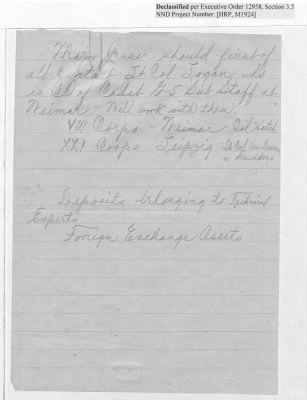 Declassified per Executive Order 12958, Section 3.5
NND Project Number: [HRP, M1924]
should first of
all contact Lt Col. Logan, who
is CO of Cadet G-5 Sub Staff at
Weimar - Will work with them.
VIII Corps - Weimar - Col
XXI Corps Leipzig Lt Col
or Saunders
Deposits belonging to Technical
Experts
Foreign Exchange Assets